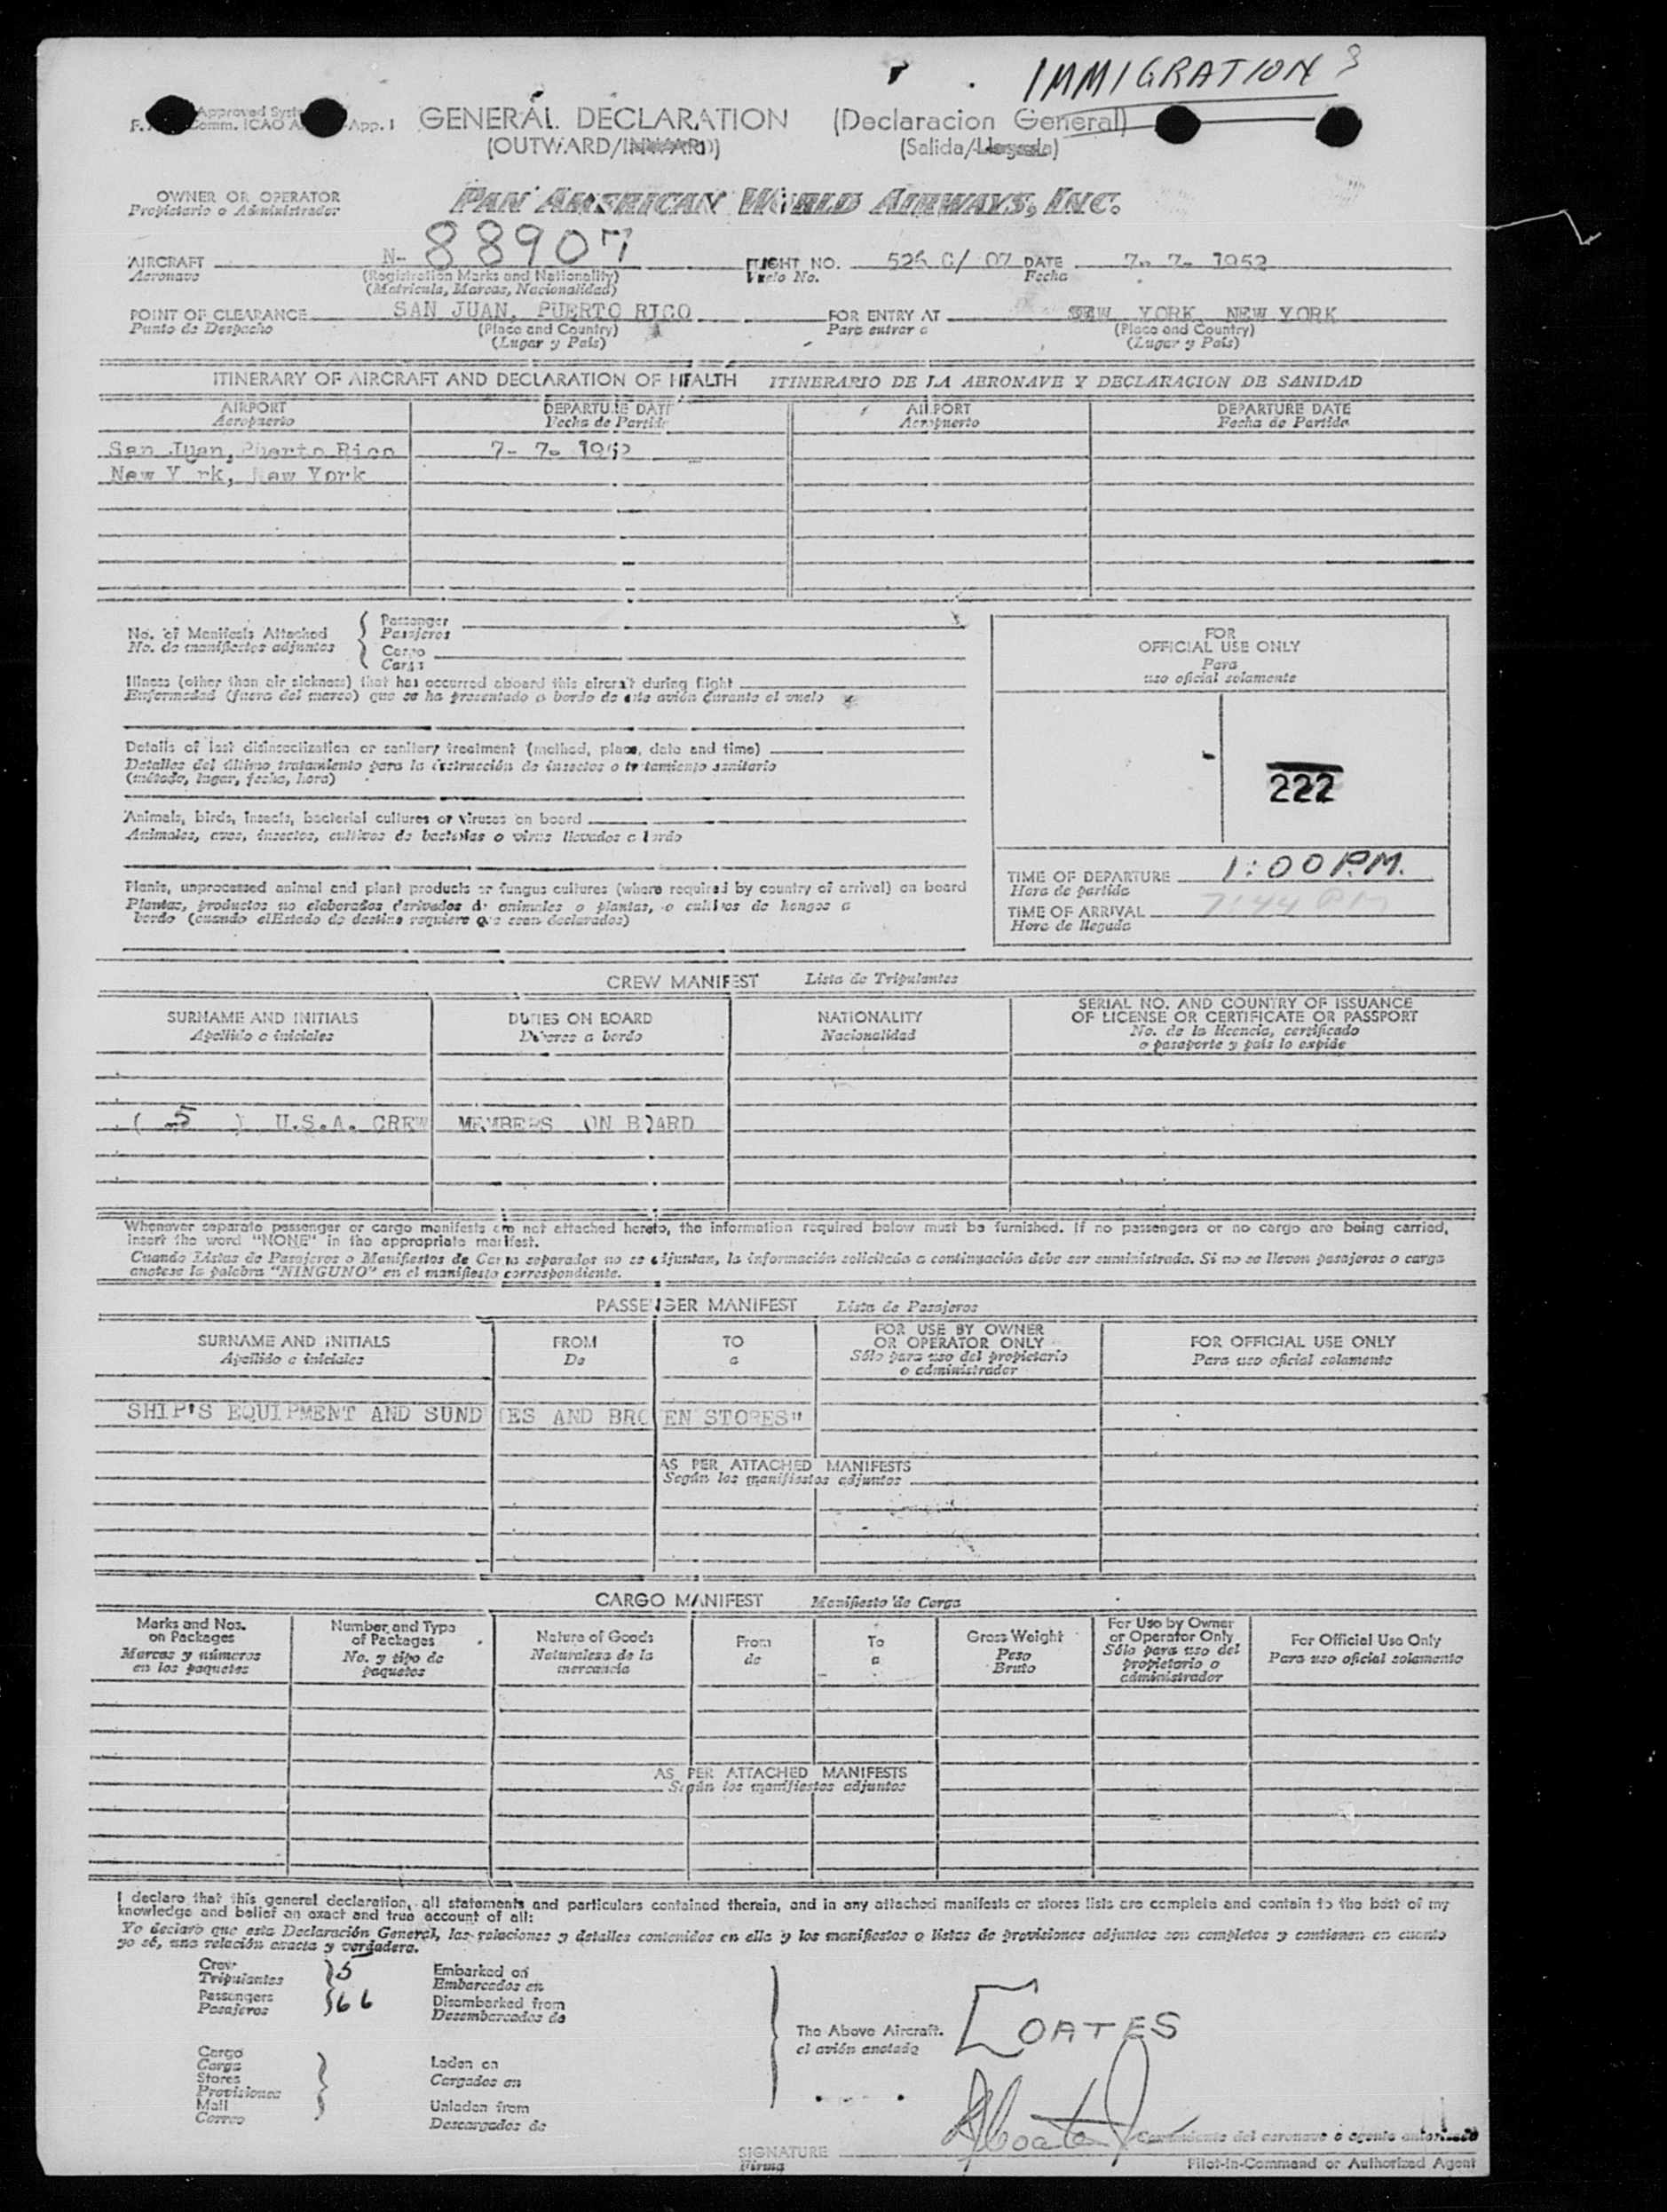 IMMIGRATION
Approved
Comm. ICAO App. 1
GENERAL DECLARATION (Declaracion General)
(OUTWARD/INWARD) (Salida/Llegada)
OWNER OR OPERATOR PAN AMERICAN WORLD AIRWAYS, INC.
Propietario o Administrador
AIRCRAFT N- 88907 FLIGHT NO. 526 C/ 07 DATE 7- 7- 1952
Aeronave (Registration Marks and Nationality) Vuelo No. Fecha
(Matricula, Marcas, Nacionalidad)
POINT OF CLEARANCE SAN JUAN, PUERTO RICO FOR ENTRY AT NEW YORK, NEW YORK
Punto de Despacho (Place and Country) Para entrar a (Place and Country)
(Lugar y País) (Lugar y País)
ITINERARY OF AIRCRAFT AND DECLARATION OF HEALTH ITINERARIO DE LA AERONAVE Y DECLARACION DE SANIDAD
AIRPORT DEPARTURE DATE AIRPORT DEPARTURE DATE
Aeropuerto Fecha de Partida Aeropuerto Fecha de Partida
San Juan, Puerto Rico 7- 7- 1952
New York, New York
No. of Manifests Attached { Passenger
No. de manifiestos adjuntos Pasajeros
Cargo
Carga
FOR
OFFICIAL USE ONLY
Para
uso oficial solamente
Illness (other than air sickness) that has occurred aboard this aircraft during flight
Enfermedad (fuera del mareo) que se ha presentado a bordo de este avión durante el vuelo
Details of last disinsectization or sanitary treatment (method, place, date and time)
Detalles del último tratamiento para la destrucción de insectos o tratamiento sanitario
(método, lugar, fecha, hora)
222
Animals, birds, insects, bacterial cultures or viruses on board
Animales, aves, insectos, cultivos de bacterias o virus llevados a bordo
Plants, unprocessed animal and plant products or fungus cultures (where required by country of arrival) on board
Plantas, productos no elaborados derivados de animales o plantas, o cultivos de hongos a
bordo (cuando el Estado de destino requiere que sean declarados)
TIME OF DEPARTURE 1:00 P.M.
Hora de partida
TIME OF ARRIVAL 7:44 PM
Hora de llegada
CREW MANIFEST Lista de Tripulantes
SURNAME AND INITIALS DUTIES ON BOARD NATIONALITY SERIAL NO. AND COUNTRY OF ISSUANCE
OF LICENSE OR CERTIFICATE OR PASSPORT
Apellido e iniciales Deberes a bordo Nacionalidad No. de la licencia, certificado
o pasaporte y país lo expide
( 5 ) U.S.A. CREW MEMBERS ON BOARD
Whenever separate passenger or cargo manifests are not attached hereto, the information required below must be furnished. If no passengers or no cargo are being carried,
insert the word "NONE" in the appropriate manifest.
Cuando Listas de Pasajeros o Manifiestos de Carga separados no se adjuntan, la información solicitada a continuación debe ser suministrada. Si no se llevan pasajeros o carga
anotese la palabra "NINGUNO" en el manifiesto correspondiente.
PASSENGER MANIFEST Lista de Pasajeros
SURNAME AND INITIALS FROM TO FOR USE BY OWNER FOR OFFICIAL USE ONLY
OR OPERATOR ONLY
Apellido e iniciales De a Sólo para uso del propietario Para uso oficial solamente
o administrador
SHIP'S EQUIPMENT AND SUNDRIES AND BROKEN STORES"
AS PER ATTACHED MANIFESTS
Según los manifiestos adjuntos
CARGO MANIFEST Manifiesto de Carga
Marks and Nos. on Packages Number and Type of Packages Nature of Goods From To Gross Weight For Use by Owner or Operator Only For Official Use Only
Marcas y números en los paquetes No. y tipo de paquetes Naturaleza de la mercancia de a Peso Bruto Sólo para uso del propietario o administrador Para uso oficial solamente
AS PER ATTACHED MANIFESTS
Según los manifiestos adjuntos
I declare that this general declaration, all statements and particulars contained therein, and in any attached manifests or stores lists are complete and contain to the best of my
knowledge and belief an exact and true account of all:
Yo declaro que esta Declaración General, las relaciones y detalles contenidos en ella y los manifiestos o listas de provisiones adjuntos son completos y contienen en cuanto
yo sé, una relación exacta y verdadera.
Crew 5 Embarked on
Tripulantes Embarcados en
Passengers 66 Disembarked from
Pasajeros Desembarcados de
The Above Aircraft. COATES
el avión anotado
Cargo
Carga Laden on
Stores Cargados en
Provisiones
Mail Unladen from
Correo Descargados de
SIGNATURE Comandante del aeronave o agente autorizado
Firma Pilot-in-Command or Authorized Agent